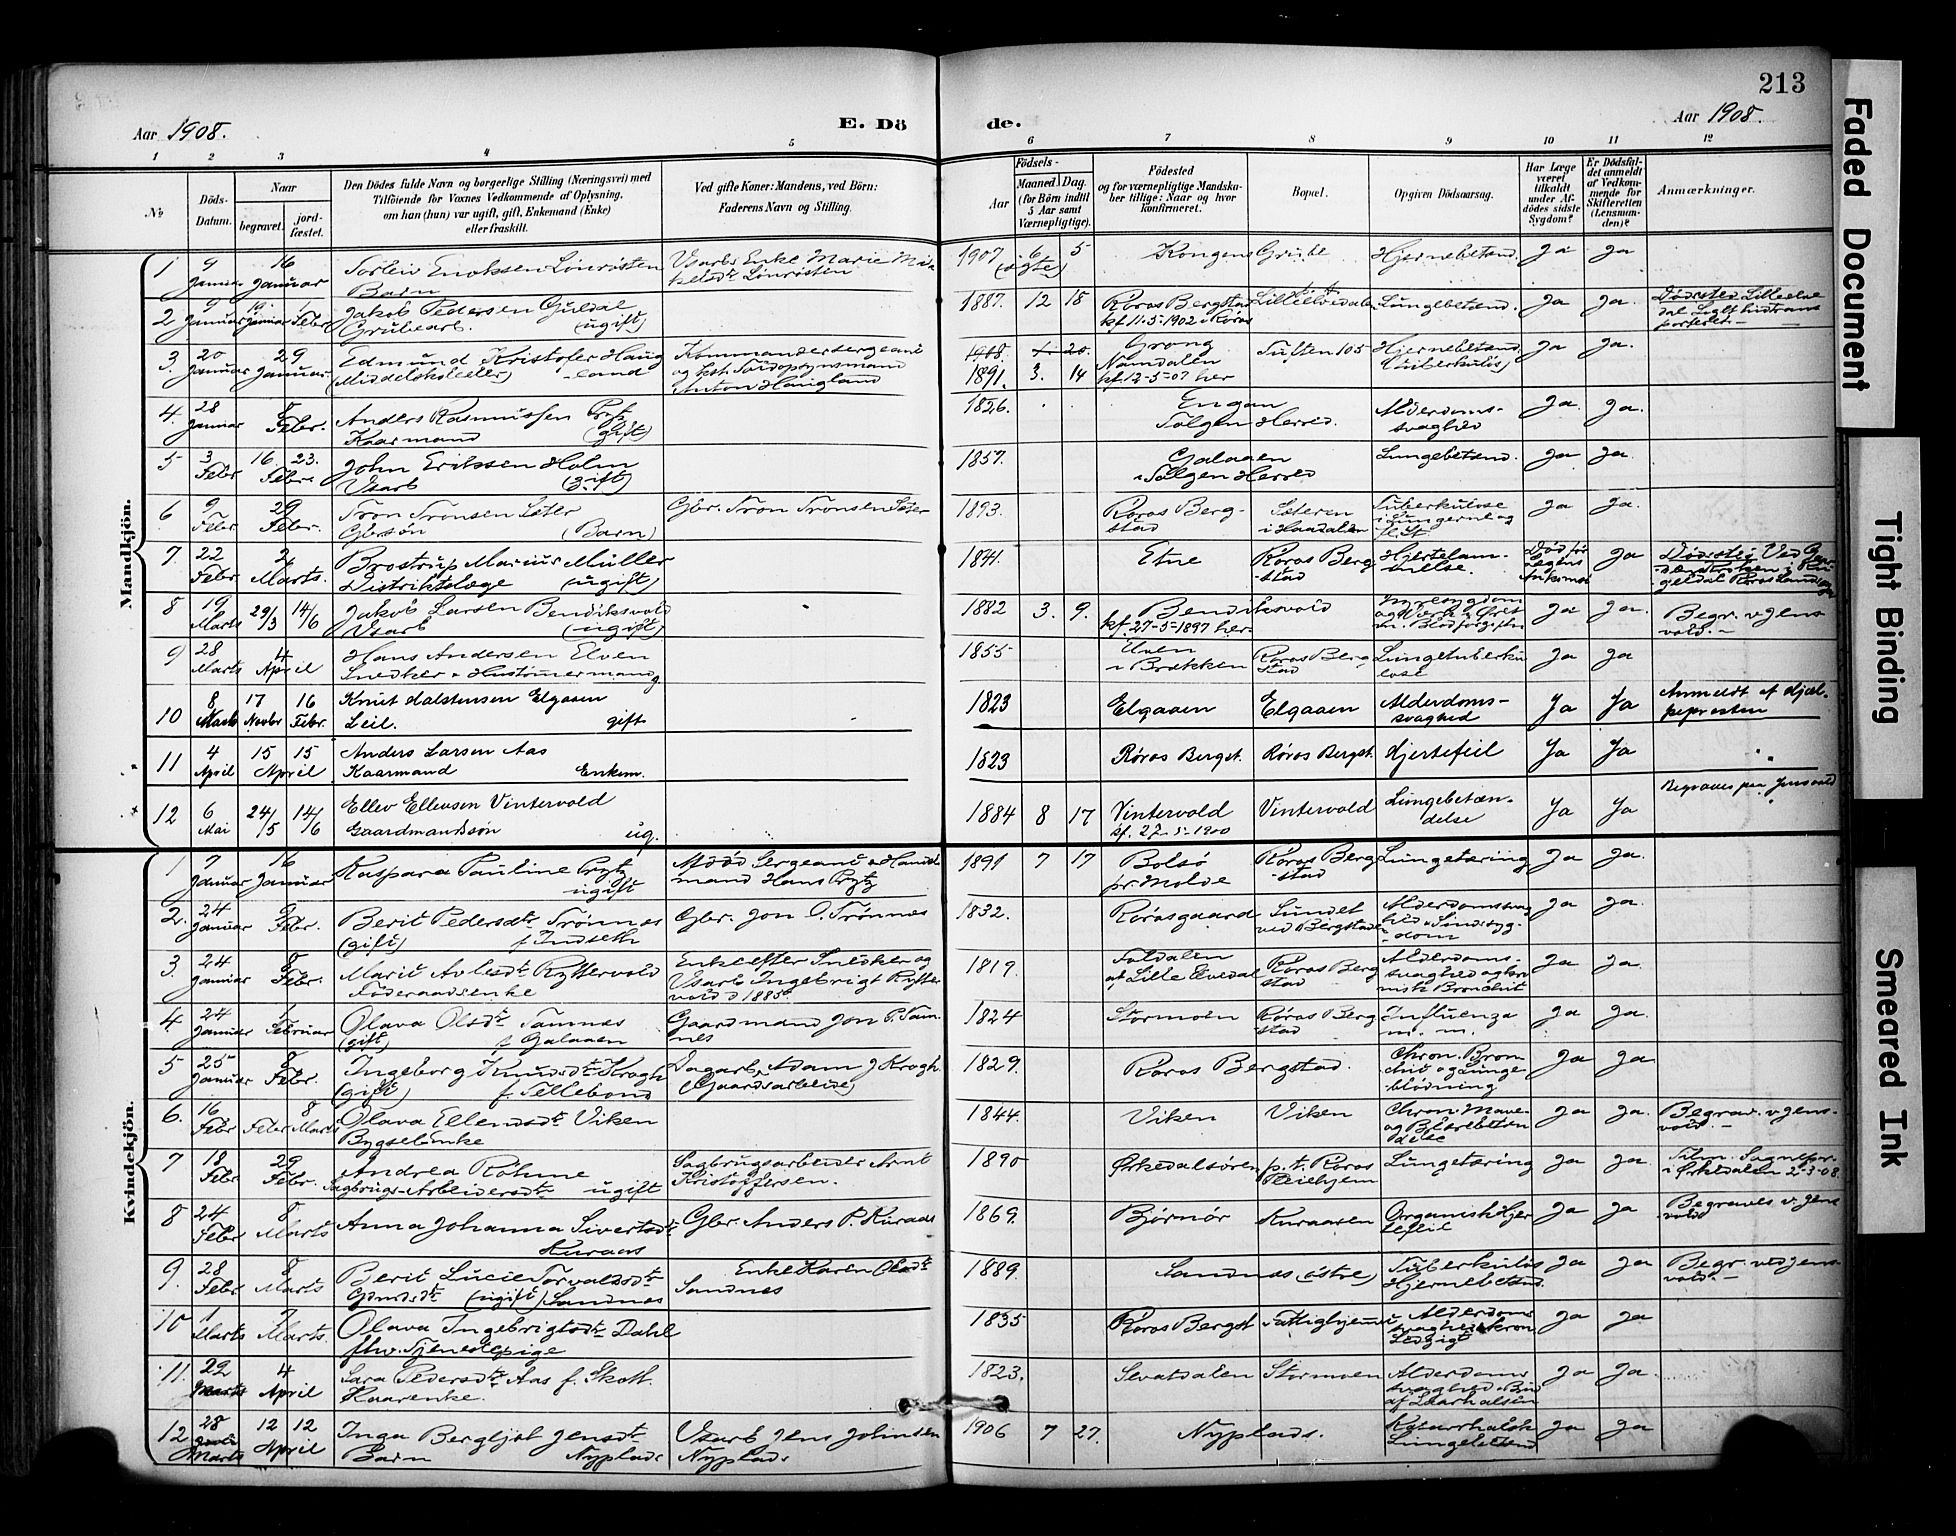 213
Aar 1908.
E. Dö
de.
Aar 1908.
1 2 3 4 5 6 7 8 9 10 11 12
№
Döds-Datum.
Naar
begravet.
jord-fæstet.
Den Dödes fulde Navn og borgerlige Stilling (Næringsvei) med
Tilföiende for Voxnes Vedkommende af Oplysning,
om han (hun) var ugift, gift, Enkemand (Enke)
eller fraskilt.
Ved gifte Koner: Mandens, ved Börn:
Faderens Navn og Stilling.
Födsels-
Aar
Maaned. Dag.
(for Börn indtil
5 Aar samt
Værnepligtige).
Födested
og for værnepligtige Mandska-
ber tillige: Naar og hvor
konfirmeret.
Bopæl.
Opgiven Dödsaarsag.
Har Læge
været
tilkaldt
under Af-
dödes sidste
Sygdom?
Er Dödsfal-
det anmeldt
af Vedkom-
mende for
Skifteretten
(Lensman-
den)?
Anmærkninger.
Mandkjön.
1 9 Januar 16 Januar Torleiv Eriksen Lönrösten Barn Vsarb. Enke Marie Mikelsdtr Lönrösten 1907 (ægte) 6 5 Kongens Grube Hjernebetænd. Ja Ja
2 9 Januar 19 Januar 1 Febr Jakob Pedersen Guldal Grubearb. (ugift) 1887. 12 18 Röros Bergstad kf. 11-5-1902 i Röros Lungebetænd. Ja Ja. Dödssted Lilleelvedal
3. 20 Januar 29 Januar Edmund Kristofer Haugland (Middelskoleelev) Kommandersergeant og kst. Toldopsynsmand Anton Haugland 1908. 1. 20. 1891. 3. 14 Grong Namdalen kf. 12-5-07 her Tuften 105 Hjernebetænd. (tuberkulös) Ja Ja.
4. 28 Januar 8 Febr. Anders Rasmussen Prytz Kaarmand (gift) 1826. Engan Tolgen Herred. Alderdoms-svaghed Ja. Ja.
5 3 Febr 16. 23. Febr. John Eriksen Holm Vsarb (gift) 1857. Galaaen i Tolgen Herred Lungebetænd. Ja Ja.
6 9 Febr 29 Febr. Tron Tronsen Sæter Gbrsön (Barn) Gbr. Tron Tronsen Sæter 1893. Röros Bergstad Sæteren i Haadalen Tuberkulose i Lungerne og Ja Ja.
7. 22 Febr 2 Marts. Brostrup Marius Müller Distriktslæge (ugift) 1841. Etne Röros Bergstad Hjertelammelse. Död för Lægens Ankomst Ja Dödssted Ved
8 19 Marts 29/3 14/6 Jakob Larsen Bendiksvold Vsarb (ugift) 1882 3. 9. Bendiksvold kf. 27-5-1897 her. Nyresygdom Ja Ja. Begr. v. Jensvold.
9 28 Marts 4 April Hans Andersen Elven Snedker & Hustömmermand g. 1855 Elven i Brekken Röros Bergstad Lungetuberkulose Ja Ja
10 8 Marts 17 Novbr 16 Febr. Knut Halstensen Elgaaen Leil. gift 1823 Elgaaen Elgaaen Alderdoms-svaghed Ja Ja Anmeldt af Hjælpepresten
11 4 April 15 15 April Anders Larsen Aas Kaarmand Enkem. 1823 Röros Bergst. Röros Bergst. Hjertefeil Ja Ja
12 6 Mai 24/5 14/6 Ellev Ellevsen Vintervold Gaardmandssön ug. 1884 8 17 Vintervold kf. 27-5-1900 Vintervold Lungebetæn-delse Ja Ja Begraves paa Jensvold
Kvindekjön.
1 7 Januar 16 Januar Kaspara Pauline Prytz ugift Sergeant Hans Prytz 1891 7 17 Bolsö pr. Molde Röros Bergstad Lungetæring Ja Ja.
2. 24 Januar Febr. Berit Pedersdtr Trönnes (gift) f. Indseth Gbr. Jon O. Trönnes 1832. Rörosgaard Sundet ved Bergstaden Alderdomssvaghed Sindssygdom Ja Ja.
3. 24 Januar 8 Febr. Marit Avlesdtr Ryttervold Föderaadsenke Enke efter Snedker og Vsarb Ingebrigt Ryttervold d 1885. 1819. Foldalen af Lille Elvedal Röros Bergstad Alderdoms-svaghed og kronisk Bronchit Ja Ja.
4 24 Januar 1 Februar Olava Olsdtr Tamnes (gift) f. Galaaen Gaardmand Jon P. Tamnes 1824 Stormoen Röros Bergstad Influenza m. m. Ja Ja.
5 25 Januar 8 Febr. Ingeborg Knudsdtr Krogh (gift) f. Tellebond Dagarb. Adam J. Krogh (Gaardsarbeide) 1829. Röros Bergstad. Chron. Bronchit og Lungeblödning Ja Ja.
6. 16 Febr Febr 8 Marts Olava Ellensdtr Viken Bygselenke 1844. Viken Viken Chron. Mave- og Blærebetændelse Ja Ja. Begrav. v Jensvold.
7 18 Febr 29 Febr. Andrea Röhme Sagbrugs-Arbeidersdtr ugift Sagbrugsarbeider Arnt Kristoffersen. 1890 Ørkedalsören p. t. Röros Pleiehjem Lungetæring Ja Ja i Ørkedalen 2-3-08.
8 24 Febr 8 Marts Anna Johanna Sivertsdtr Kuraas Gbr. Anders P. Kuraas 1869. Bjørnör Kuraasen Organisk Hjertefeil Ja Ja. Begraves v. Jensvold
9. 28 Febr 8 Marts Berit Lucie Torvaldsdtr Gdmdsdtr (ugift) Sandnes Enke Karen Olsdtr Sandnes 1889. Sandnes (östre) Tuberkulös Hjernebetænd. Ja Ja Begr. ved Jensvold.
10 1 Marts 7 Marts. Olava Ingebrigtsdtr Dahl fhv. Tjenestepige 1835 Röros Bergst Fattighjemmet Alderdomssvaghed Ja Ja
11. 29 Marts 4 April Sara Pedersdtr Aas f. Skott. Kaarenke. 1823. Stormoen Alderdomssvaghed Ja Ja
12 28 Marts 12 12 April Inga Bergljot Jensdtr Barn Nyplads Vsarb Jens Johnsen Nyplads 1906 7 27. Nyplads. Katarrhalsk Lungebetænd Ja Ja
Faded Document
Tight Binding
Smeared Ink